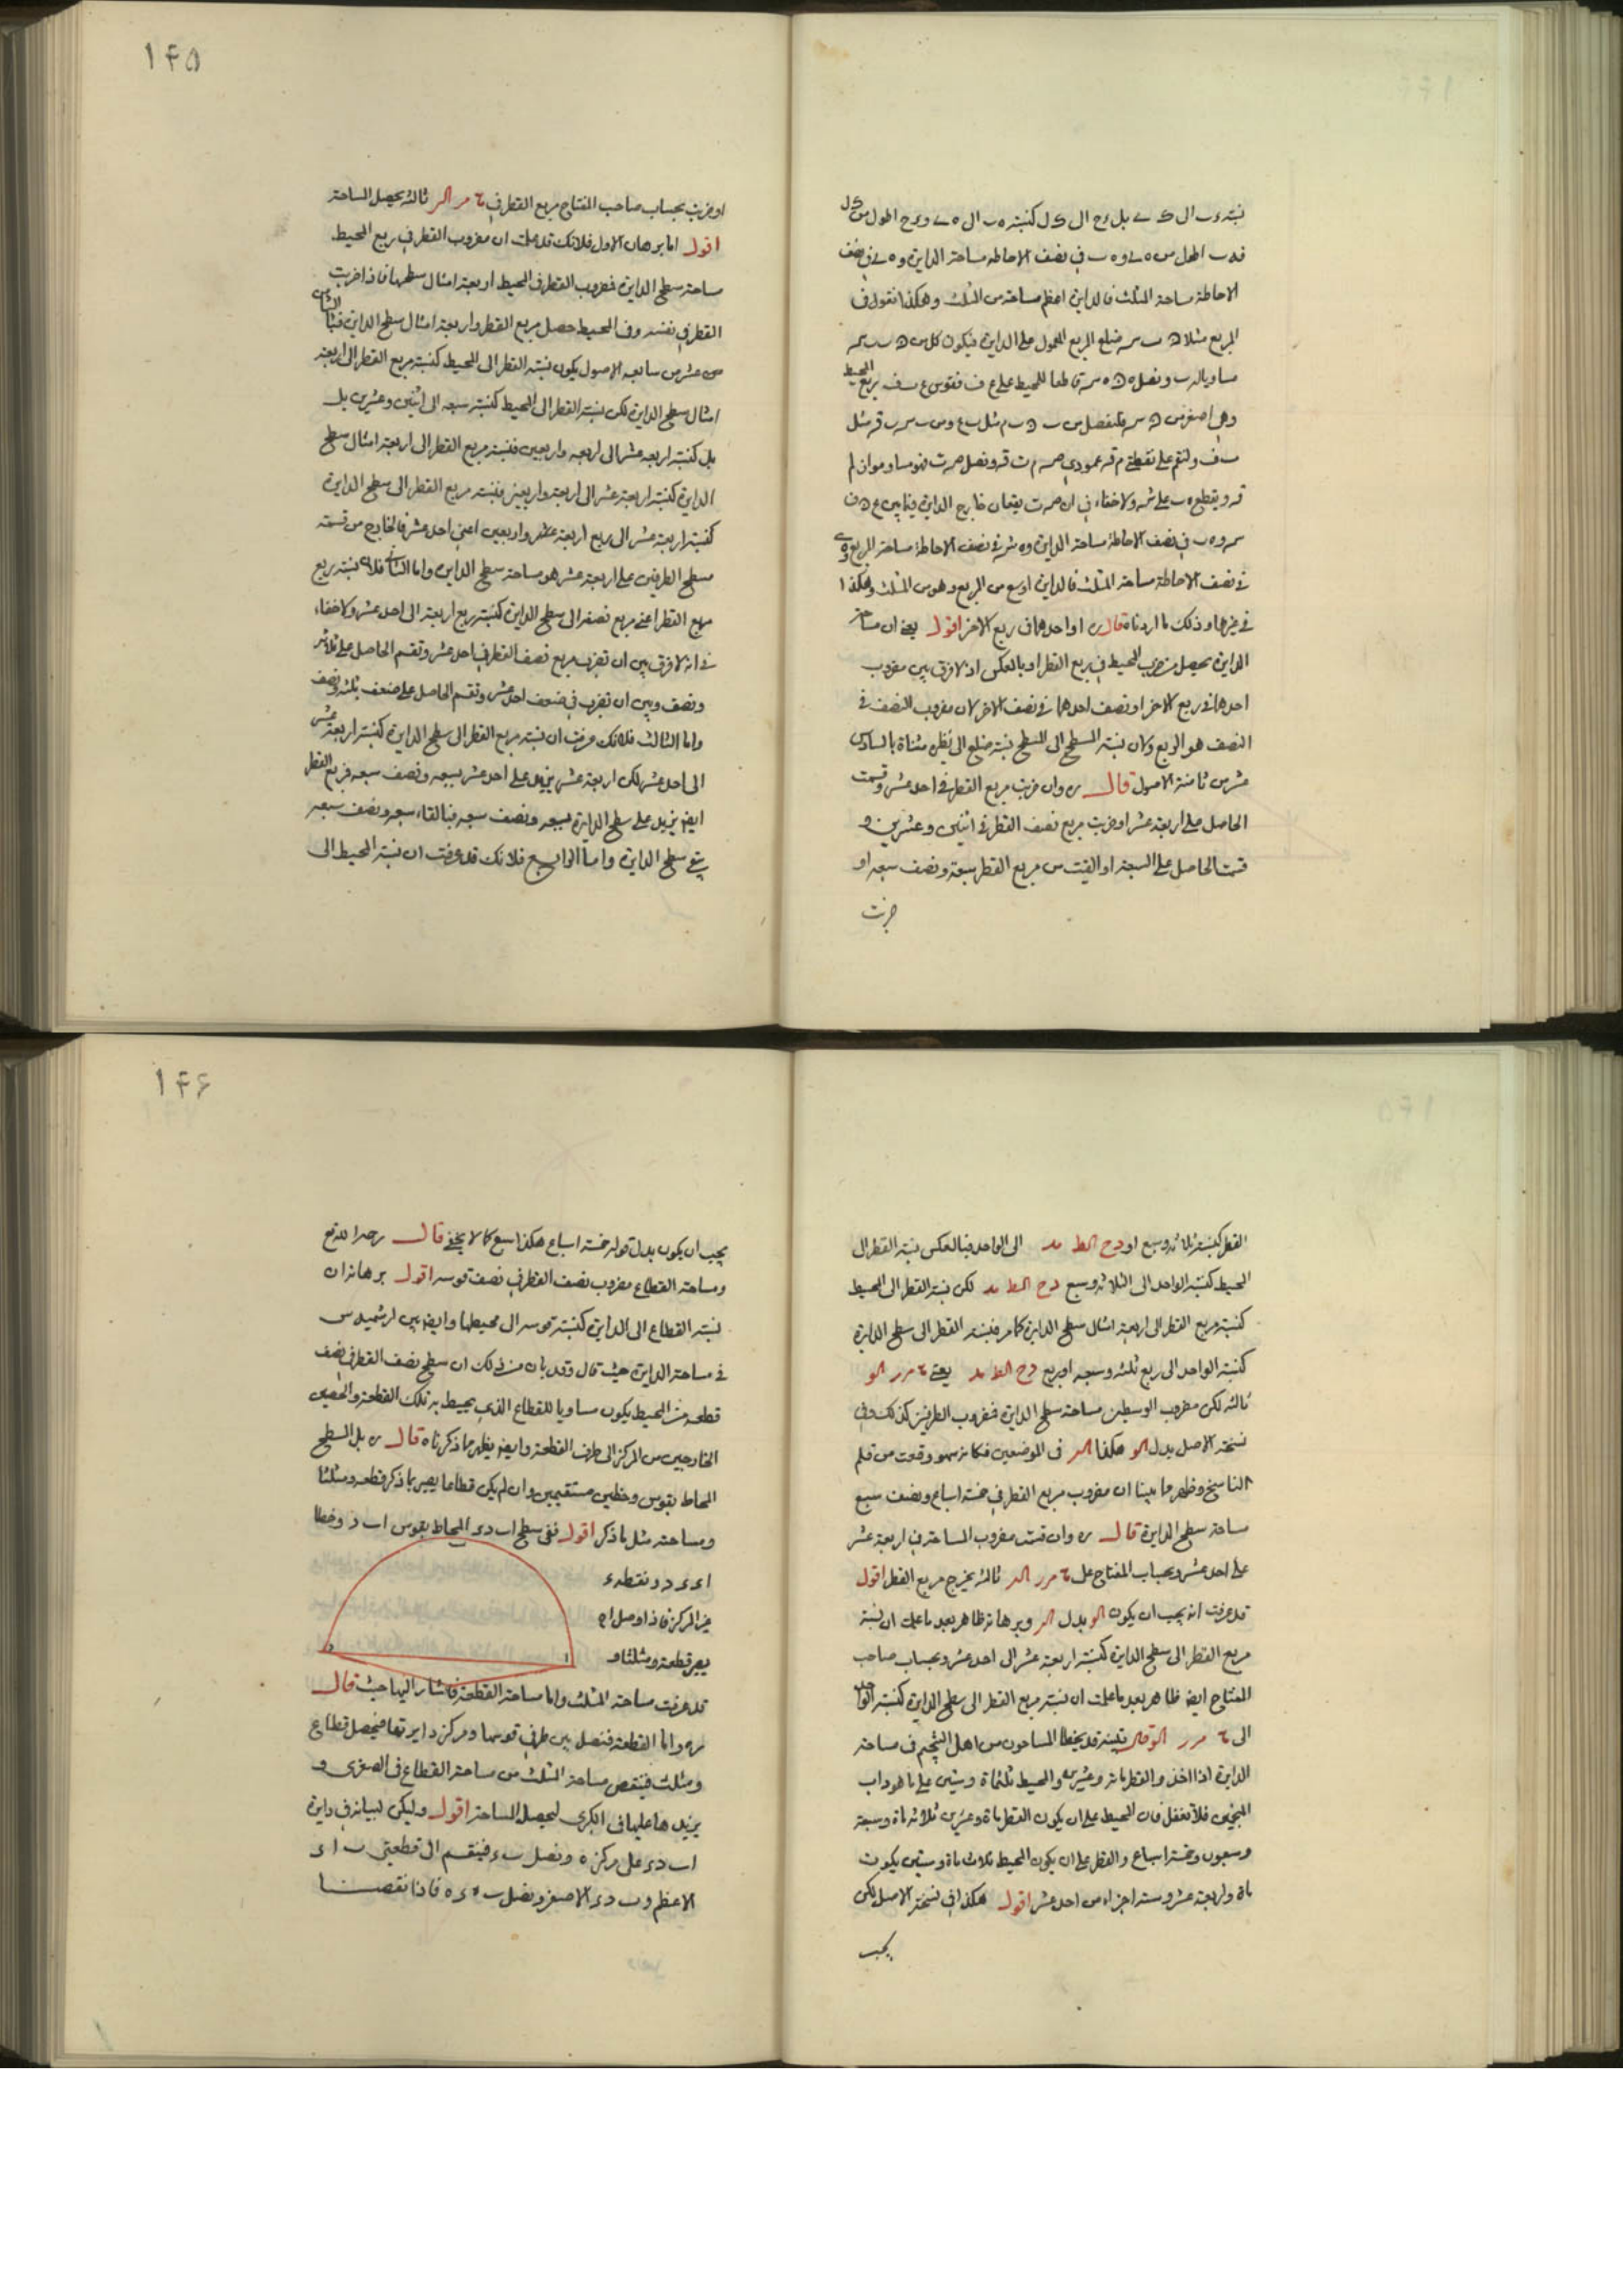 نسبته ءب الى ك ے بل ءح الى ك ل كنسبته ه ب الى ه ے و ءح اطول من ك ل
فه ب اطول من ه ے و ه ب فى نصف الاحاطه مساحته الدايرة و ه ے فى نصف
الاحاطة مساحة المثلث فالدايرة اعظم مساحته من المثلث وهكذا نقول فى
المربع مثلا ضلع المربع المعمول على الدايرة فيكون كل من
مساويا لـ ب ونصل قاطعا للمحيط على ع ف فقوس ع ب ف ربع المحيط
وهى اصغر من فلنفصل من مثل ب ع ومن مثل
ب ف ولنقم على نقطتى م ق عمودى ونصل فهو مساو مواز ل م
ق ويقطع ه ب على ش ولا خفاء فى ان يقعان خارج الدايرة فيما بين
و ه ب فى نصف الاحاطة مساحة الدايرة و ه ش فى نصف الاحاطة مساحة المربع و ه ے
فى نصف الاحاطة مساحته المثلث فالدايرة اوسع من المربع وهو من المثلث وهكذا
فى غيرها وذلك ما اردناه قال ره او احدهما فى ربع الاخر اقول يعنى ان مساحة
الدايرة يحصل من ضرب المحيط فى ربع القطر او بالعكس اذ لا فرق بين مضروب
احدهما فى ربع الاخر او نصف احدهما فى نصف الاخر لان مضروب النصف فى
النصف هو الربع ولان نسبته السطح الى السطح نسبته ضلع الى نظيره مثناة بالسادس
عشر من ثامنة الاصول قال ره وان ضربت مربع القطر فى احد عشر وقسمت
الحاصل على اربعة عشر او ضربت مربع نصف القطر فى اثنين وعشرين و
قسمت الحاصل على السبعة او القيت من مربع القطر سبعه ونصف سبعه او
ضربت
١۴۵
او ضربت بحساب صاحب المفتاح مربع القطر فى ثالثه يحصل المساحة
اقول اما برهان الاول فلانك قد علمت ان مضروب القطر فى ربع المحيط
مساحته سطح الدايرة فمضروب القطر فى المحيط اربعة امثال سطحها فاذا ضربت
القطر فى نفسه وفى المحيط حصل مربع القطر واربعة امثال سطح الدايرة فبالثامن
عشر من سابعه الاصول يكون نسبته القطر الى المحيط كنسبته مربع القطر الى اربعة
امثال سطح الدايرة لكن نسبته القطر الى المحيط كنسبته سبعه الى اثنين وعشرين بل
بل كنسبته اربعه عشر الى اربعه واربعين فنسبته مربع القطر الى اربعة امثال سطح
الدايرة كنسبته اربعة عشر الى اربعة واربعين فنسبته مربع القطر الى سطح الدايرة
كنسبته اربعة عشر الى ربع اربعة واربعين اعنى احد عشر فالخارج من قسمته
مسطح الطرفين على اربعة عشر هو مساحة سطح الدايرة واما الثانى فلان نسبته ربع
مربع القطر اعنى مربع نصفه الى سطح الدايرة كنسبته ربع اربعة الى احد عشر ولا خفاء
فى انه لا فرق بين ان تضرب مربع نصف القطر فى احد عشر وتقسم الحاصل على ثلاثه
ونصف وبين ان تضرب فى ضعف احد عشر وتقسم الحاصل على ضعف ثلثه ونصف
واما الثالث فلانك عرفت ان نسبته مربع القطر الى سطح الدايرة كنسبته اربعة عشر
الى احد عشر لكن اربعة عشر يزيد على احد عشر بسبعه ونصف سبعه فمربع القطر
ايضا يزيد على سطح الدايرة بسبعه ونصف سبعه فبالقاء سبعه ونصف سبعه
يبقى سطح الدايرة واما الرابع فلانك قد عرفت ان نسبة المحيط الى
القطر كنسبته ثلاثه وسبع او ح الط مد الى الواحد فبالعكس نسبته القطر الى
المحيط كنسبته الواحد الى الثلاثه وسبع ح الط مد لكن نسبته القطر الى المحيط
كنسبته مربع القطر الى اربعة امثال سطح الدايرة كما مر فنسبته القطر الى سطح الدايرة
كنسبة الواحد الى ربع ثلثه وسبعه او ربع ح الط مد يعنى
ثالثه لكن مضروب الوسطين مساحته سطح الدايرة فمضروب الطرفين كذلك وفى
نسخته الاصل بدل الو هكذا الر فى الموضعين فكانه سهو وقعت من قلم
الناسخ وظهر ما بينا ان مضروب مربع القطر فى خمسة اسباع ونصف سبع
مساحة سطح الدايرة قال ره وان قسمت مضروب المساحة فى اربعة عشر
على احد عشر وبحساب المفتاح على ثالثه يخرج مربع القطر اقول
قد عرفت انه يجب ان يكون الو بدل الر وبرهانه ظاهر بعد ما علمت ان نسبة
مربع القطر الى سطح الدايرة كنسبته اربعة عشر الى احد عشر وبحساب صاحب
المفتاح ايضا ظاهر بعد ما علمت ان نسبته مربع القطر الى سطح الدايرة كنسبة الواحد
الى الو قال تنبيه قد يخطا المساحون من اهل التنجيم فى مساحة
الدايرة اذا اخذوا القطر مائه وعشرين والمحيط ثلثمائة وستين على ما هو داب
المنجمين فلا تغفل فان المحيط على ان يكون القطر مائة وعشرين ثلاثه مائة وسبعة
وسبعون وخمسة اسباع والقطر على ان يكون المحيط ثلاث مائة وستين يكون
مائة واربعة عشر وستة اجزاء من احد عشر اقول هكذا فى نسخة الاصل لكن
يجب
١۴۶
يجب ان يكون بدل قوله خمسة اسباع هكذا سبع كما لا يخفى قال رحمه الله تع
ومساحته القطاع مضروب نصف القطر فى نصف قوسه اقول برهانه ان
نسبته القطاع الى الدايرة كنسبته قوسه الى محيطها وايضا بين ارشميدس
فى مساحته الدايرة حيث قال وقد بان من ذلك ان سطح نصف القطر فى نصف
قطعه من المحيط يكون مساويا للقطاع الذى يحيط به تلك القطعة والخطين
الخارجين من المركز الى طرف القطعة وايضا يظهر ما ذكرناه قال ره بل السطح
المحاط بقوس وخطين مستقيمين وان لم يكن قطاعا يصير بما ذكر قطعه ومثلثا
ومساحته مثل ما ذكر اقول ففى سطح ا ب د ء المحاط بقوس ا ب د وخطا
ا ء ء د ونقطه ء
غير المركز فاذا وصل ا د
يصير قطعة ومثلثا و
قد عرفت مساحته المثلث واما مساحة القطعة فاشار اليها حيث قال
ره واما القطعة فنصل بين طرفى قوسها ومركز دايرتها فيحصل قطاع
ومثلث فينقص مساحة المثلث من مساحة القطاع فى الصغرى و
يزيدها عليها فى الكبرى ليحصل المساحة اقول وليكن لبيانه فى دايرة
ا ب د ء على مركز ه ونصل ب ء فينقسم الى قطعتى ب ا ء
الاعظم و ب د ء الاصغر ونصل ب ه ء ه فاذا نقصنا